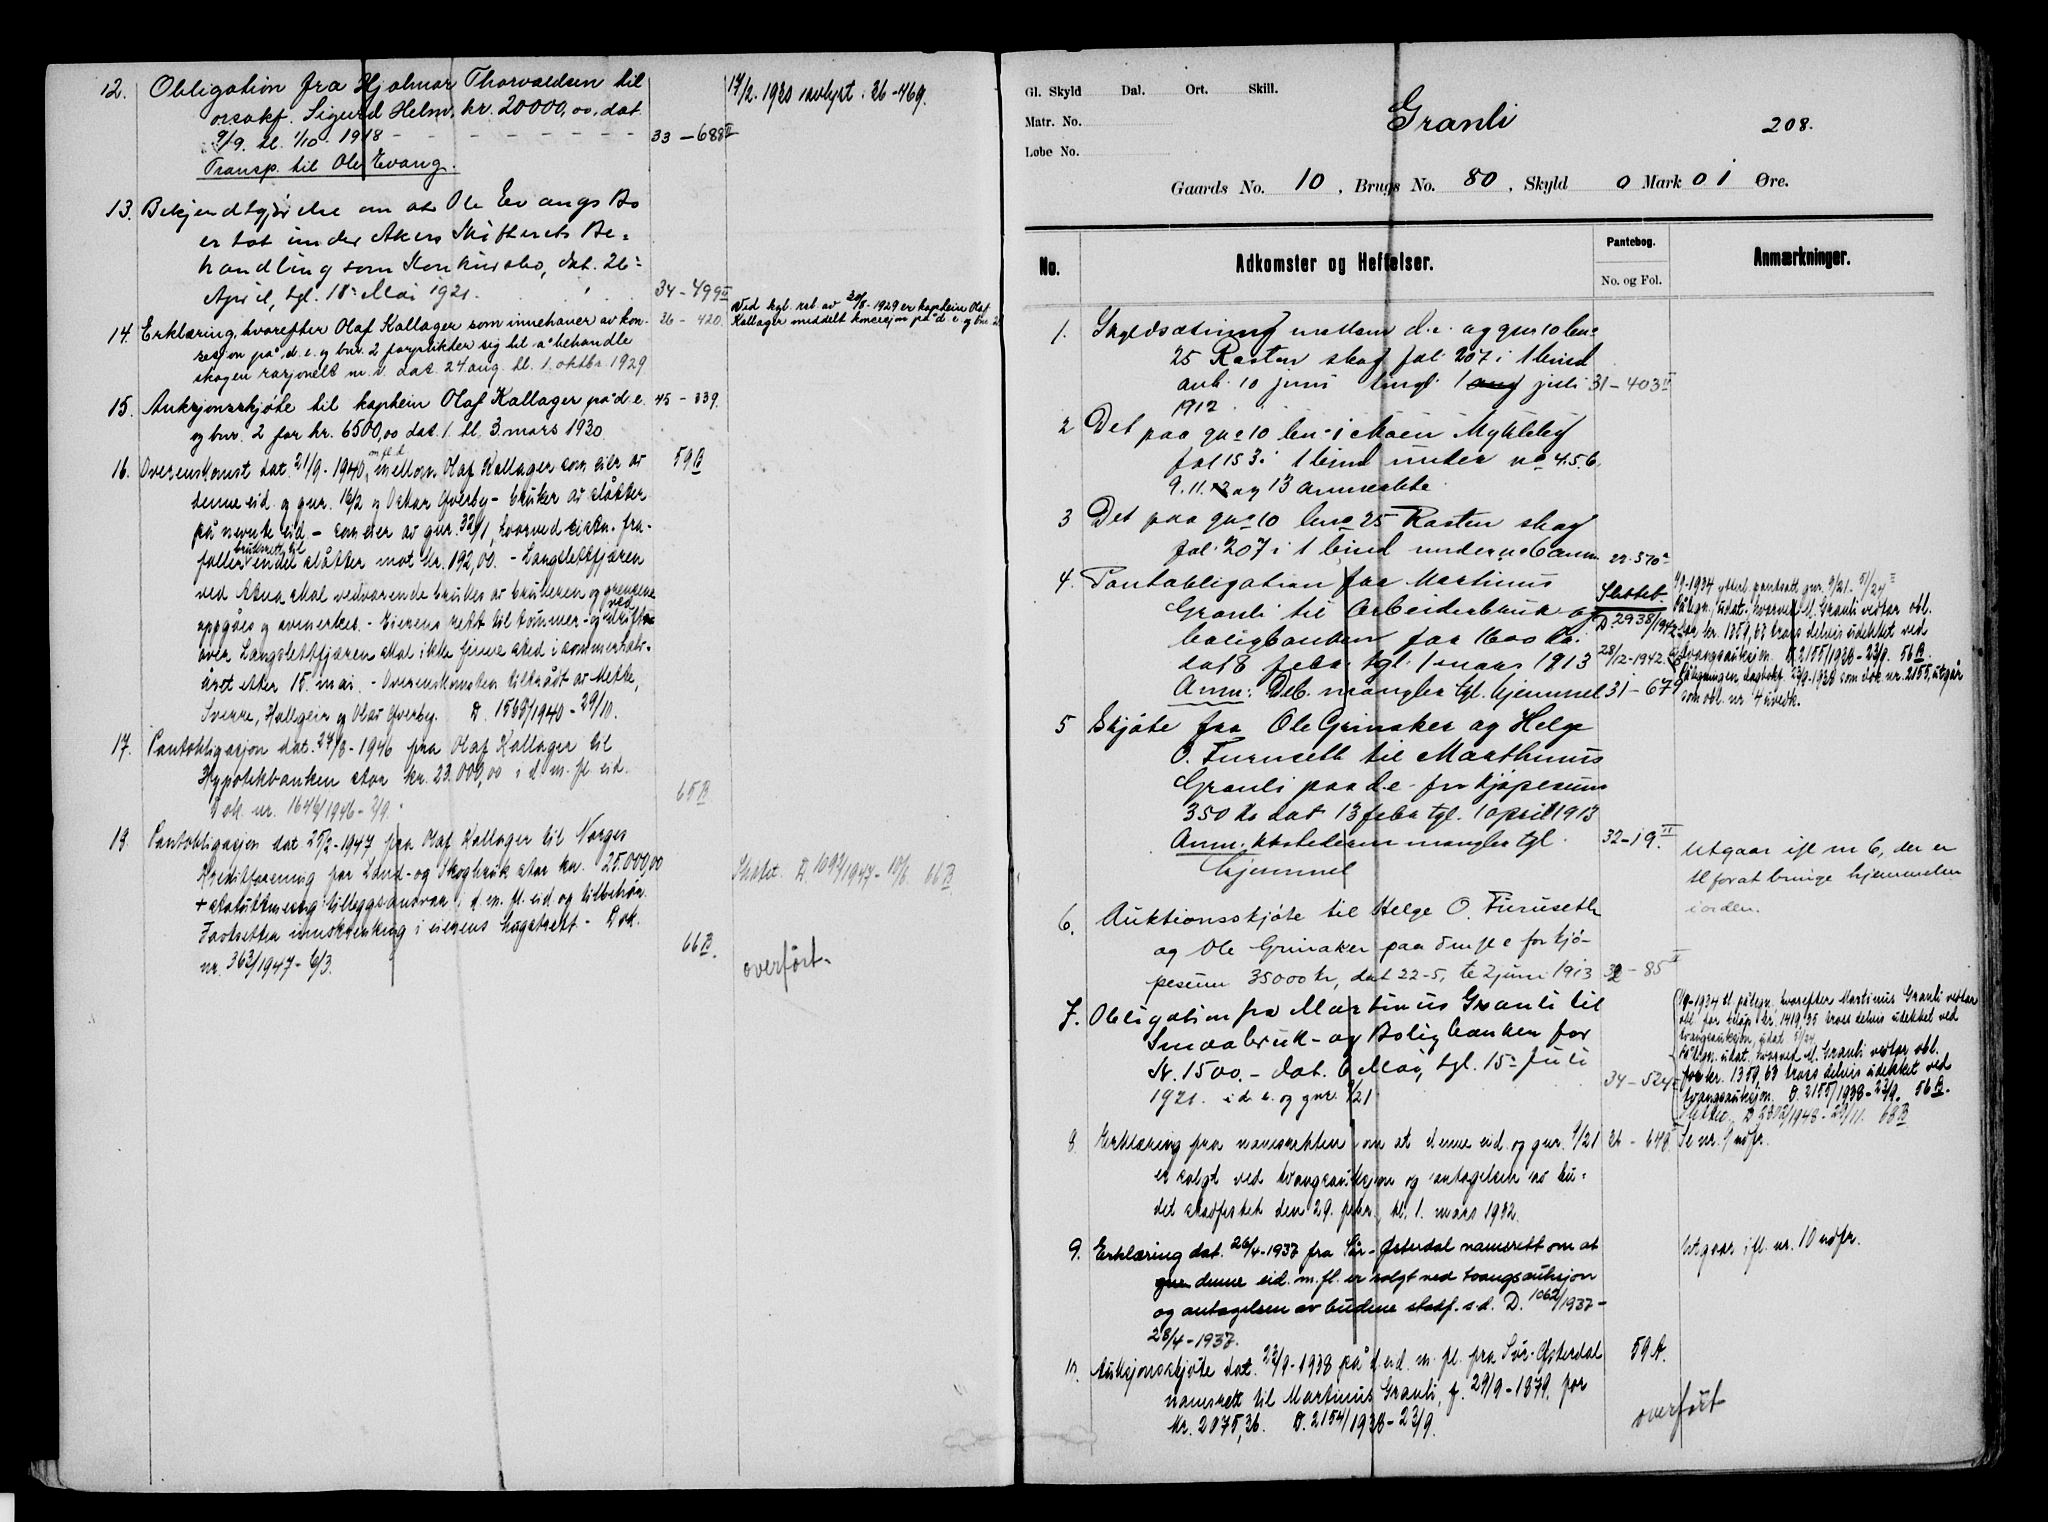 12. Obligation fra Hjalmar Thorvaldsen til
orsakf. Sigurd Helm, kr. 20000,00, dat
9/9. tl. 1/10. 1918 33 - 688 II
Transp. til Ole Evang.
17/2. 1930 avlyst. 36-469.
13. Bekjendtgjørelse om at Ole Evangs Bo
er tat under Akers Skifterets Be=
handling som Konkursbo, dat. 26=
April, tgl. 18= Mai 1921. 34 - 499 II
14. Erklæring, hvorefter Olaf Kallager som innehaver av kon- 36 - 420.
sesjon på d. e. og bnr. 2 forplikter sig til å behandle
skogen rasjonelt m. v. dat. 24 aug. tl. 1. oktbr. 1929
Ved kgl. res. av 30/8-1929 er kaptein Olaf
Kallager meddelt konsesjon på d. e. og bnr. 2
15. Auksjonsskjøte til kaptein Olaf Kallager på d. e. 45 - 339.
og bnr. 2 for kr. 6500,00 dat. 1. tl. 3. mars 1930.
16. Overenskomst dat. 21/9-1940, m. fl. d. mellom Olaf Kallager som eier av 59 B
denne eid. og gnr. 16/2 og Oskar Øverby - bruker av slåtter
på nevnte eid. - som eier av gnr. 32/1, hvorved sistn. fra-
faller bruksrett til endel slåtter mot kr. 192,00. - Langslettfjæren
ved Akna skal vedvarende brukes av brukeren og grensene
oppgåes og avmerkes. - Eierens rett til tømmer- og ved drift
over Langslettfjæren skal ikke finne sted i sommerhalv-
året etter 15. mai. - Overenskomsten tiltrådt av Mette,
Sverre, Hallgeir og Olav Øverby. D. 1563/1940 - 29/10.
17. Pantobligasjon dat. 27/8-1946 fra Olaf Kallager til
Hypotekbanken stor kr. 23.000,00 i d. m. fl. eid.
Dok. nr. 1646/1946 - 2/9. 65 B
Pantobligasjon dat 25/2-1947 fra Olaf Kallager til Norges
Kreditforening for Land- og Skogbruk stor kr. 25.000,00
+ statutmessig tilleggsansvar i d. m. fl. eid og tilbehør.
Fastsetter innskrenking i eierens hugstrett - Dok.
nr. 363/1947 - 6/3. 66 B.
Slettet D. 1092/1947 - 18/6. 66 B.
overført.
Gl. Skyld Dal. Ort. Skill.
Matr. No.
Løbe No.
Granli 208.
Gaards No. 10, Brugs No. 80, Skyld 0 Mark 01 Øre.
No. Adkomster og Heftelser. Pantebog. No. og Fol. Anmærkninger.
1. Skyldsætning mellem d. e. og gno 10 bno
25 Rasten skog fol 207 i 1 bind
avh. 10 juni tingl. 1 juli 31 - 403 II
1912.
2 Det paa gno 10 bno 1 Moen Mykleby
fol 153 i 1 bind under no 4.5.6.
9.11. 12 og 13 anmerkte.
3 Det paa gno 10 bno 25 Rasten skog
fol. 207 i 1 bind under no 6 anm. 22-570
4. Pantobligation fra Martinus
Granli til Arbeiderbruk og
boligbanken for 1600 Kr.
dat 8 febr. tgl. 1 mars 1913
Anm: Deb. mangler tgl. hjemmel 31 - 679
Slettet.
D 2938/1942
28/12-1942.
1/9-1934 ytterl. pantsatt gnr. 9/21.
Pålegn. udat. hvorved M. Granli vedtar obl.
for kr. 1359,63 tross delvis udekket ved
tvangsauksjon. D. 2155/1938 - 23/9. 56 B.
Påtegningen dagbokf. 23/9-1938 som dok. nr. 2155, utgår
som obl. nr. 4 uvedk.
5 Skjøte fra Ole Grinaker og Helge
O. Furuseth til Marthinus
Granli paa d. e. for kjøpesum
350 Kr dat 13 febr tgl. 1 april 1913 32-19. II
Anm. Utstederen mangler tgl.
hjemmel
Utgaar ifl nr 6, der er
tl forat bringe hjemmelen
i orden.
6. Auktionsskjøte til Helge O. Furuseth
og Ole Grinaker paa d m fl e for kjø-
pesum 35000 kr, dat 22-5, tl 2 juni 1913 32 - 85 II
7. Obligation fra Martinus Granli til
Smaabruk- og Boligbanken for
Kr. 1500.- dat. 6 Mai, tgl. 15= Juli
1921. i d. e. og gnr. 9/21 34 - 524
1/9-1934 tl. påtegn. hvorefter Martinus Granli vedtar
obl. for beløp kr. 1419,35 tross delvis udekket ved
tvangsauksjon, udat.
Påtegn. udat. hvorved M. Granli vedtar obl.
for kr. 1359,63 tross delvis udekket ved
tvangsauksjon. D. 2155/1938 - 23/9. 56 B.
Slettet. D 2302/1948 - 29/11. 68 B
8. Erklæring fra namsretten om at denne eid. og gnr. 9/21 36 - 648. Se nr. 9 nedfr.
er solgt ved tvangsauksjon og antagelsen av bu-
det stadfestet den 29. febr., tl. 1. mars 1932.
9. Erklæring dat. 26/4-1937 fra Sør-Østerdal namsrett om at
denne eid. m. fl. er solgt ved tvangsauksjon
og antagelsen av budene stadf. s. d. D. 1062/1937 -
28/4-1937.
Utgaar ifl. nr. 10 nedfr.
10. Auksjonsskjøte dat. 23/9-1938 på d. eid. m. fl. fra Sør-Østerdal 59 A.
namsrett til Martinus Granli, f. 29/9-1879. for
kr. 2075,36. D. 2154/1938 - 23/9.
overført